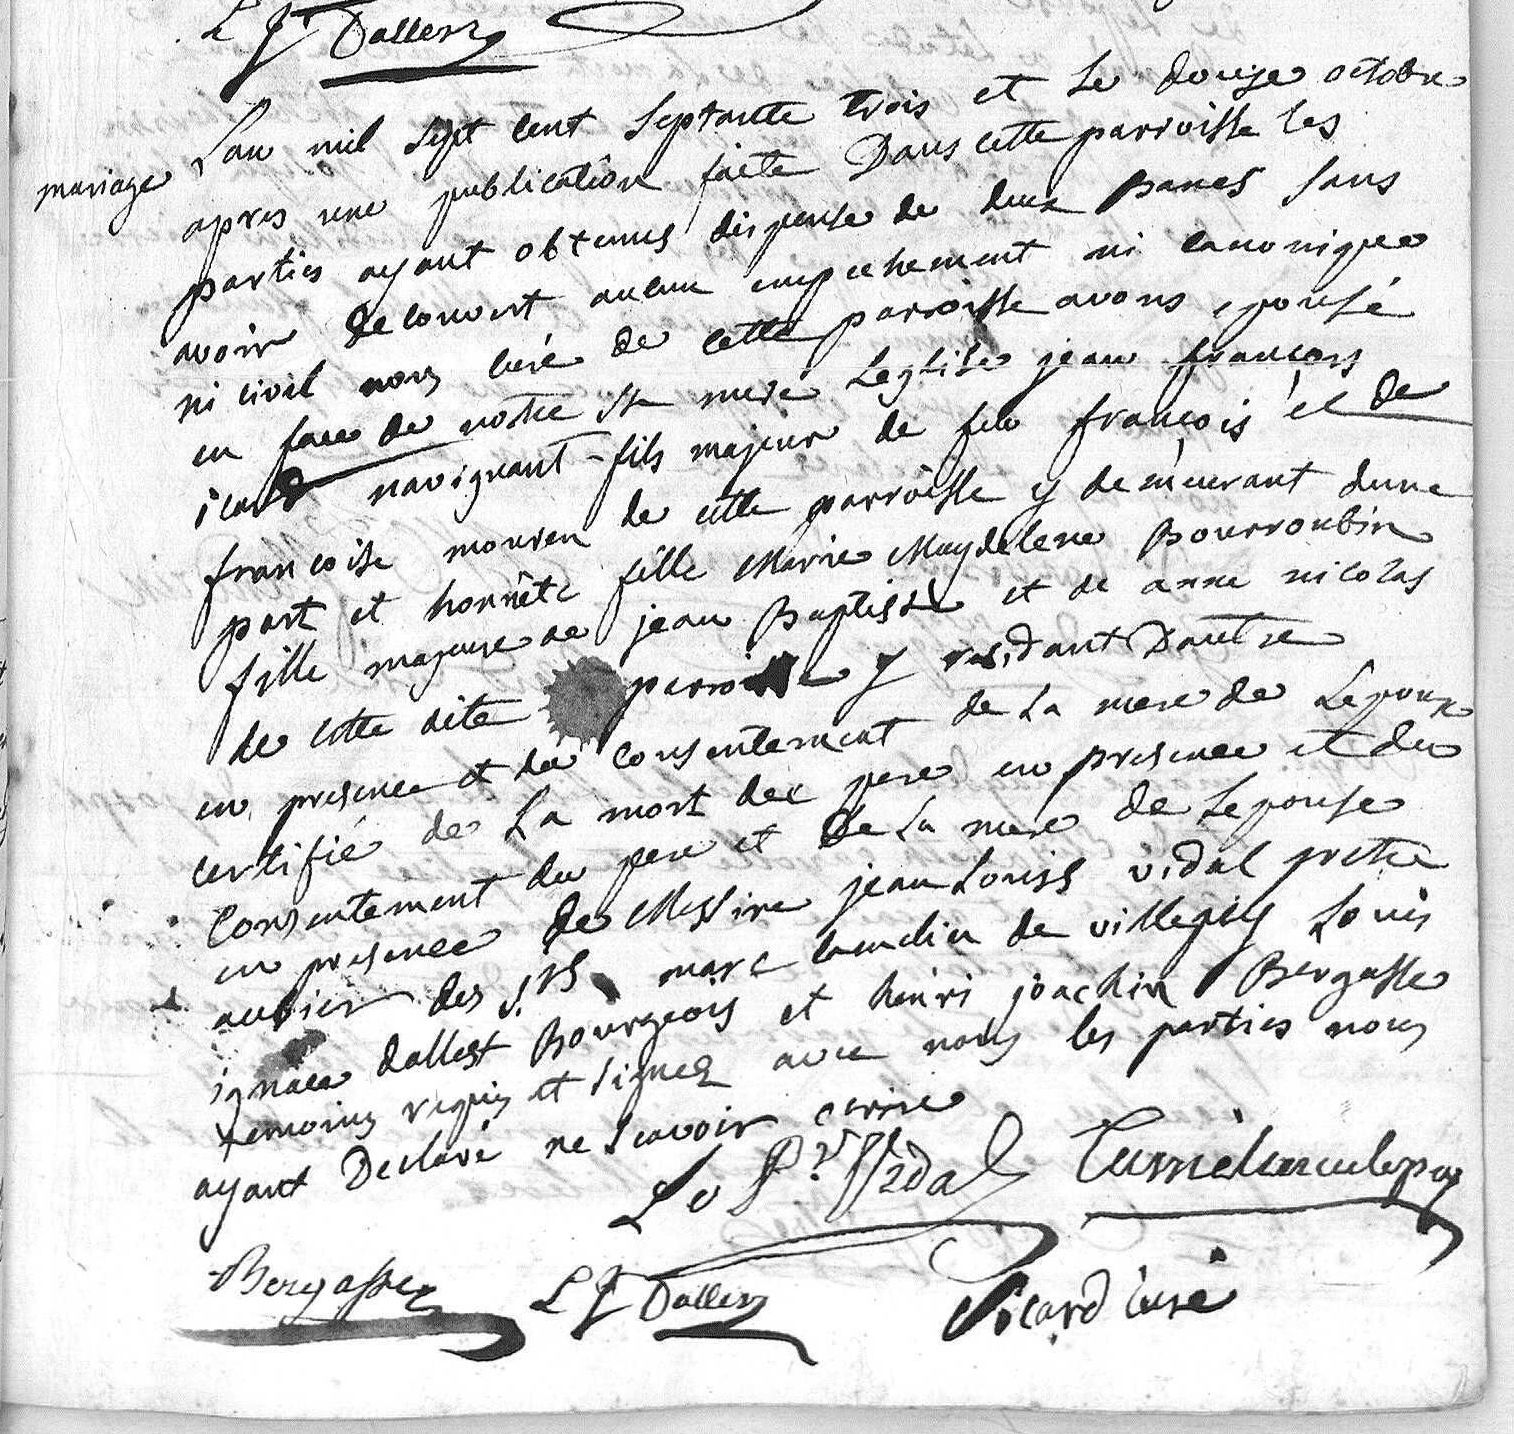 L J Dallest
mariage
Lan mil sept cent septante trois et le douze octobre
apres une publication faite Dans cette parroisse les
parties ayant obtenus dispense de deux Bancs sans
avoir decouvert aucun empechement ni canonique
ni civil nous curé de cette parroisse avons epousé
en face de notre ste mere Leglise jean françois
icard navigeant fils majeur de feu françois et de
francoise mouren de cette parroisse y demeurant dune
part et honnête fille Marie Magdelene Bourroubin
fille majeure de jean Baptiste et de anne nicolas
de cette dite parroisse y residant Dautre
en presence et du consentement de La mere de Lepoux
certifié de La mort du pere en presence et du
Consentement du pere et de La mere de Lepouse
en presence de Messire jean Louis vidal pretre
des srs marc claudin de Louis
ignace dallest Bourgeois et henri joachin Bergasse
temoins requis et signez avec nous les parties nous
ayant Declaré ne scavoir ecrire
Vidal
Bergasse L J Dallest icard curé